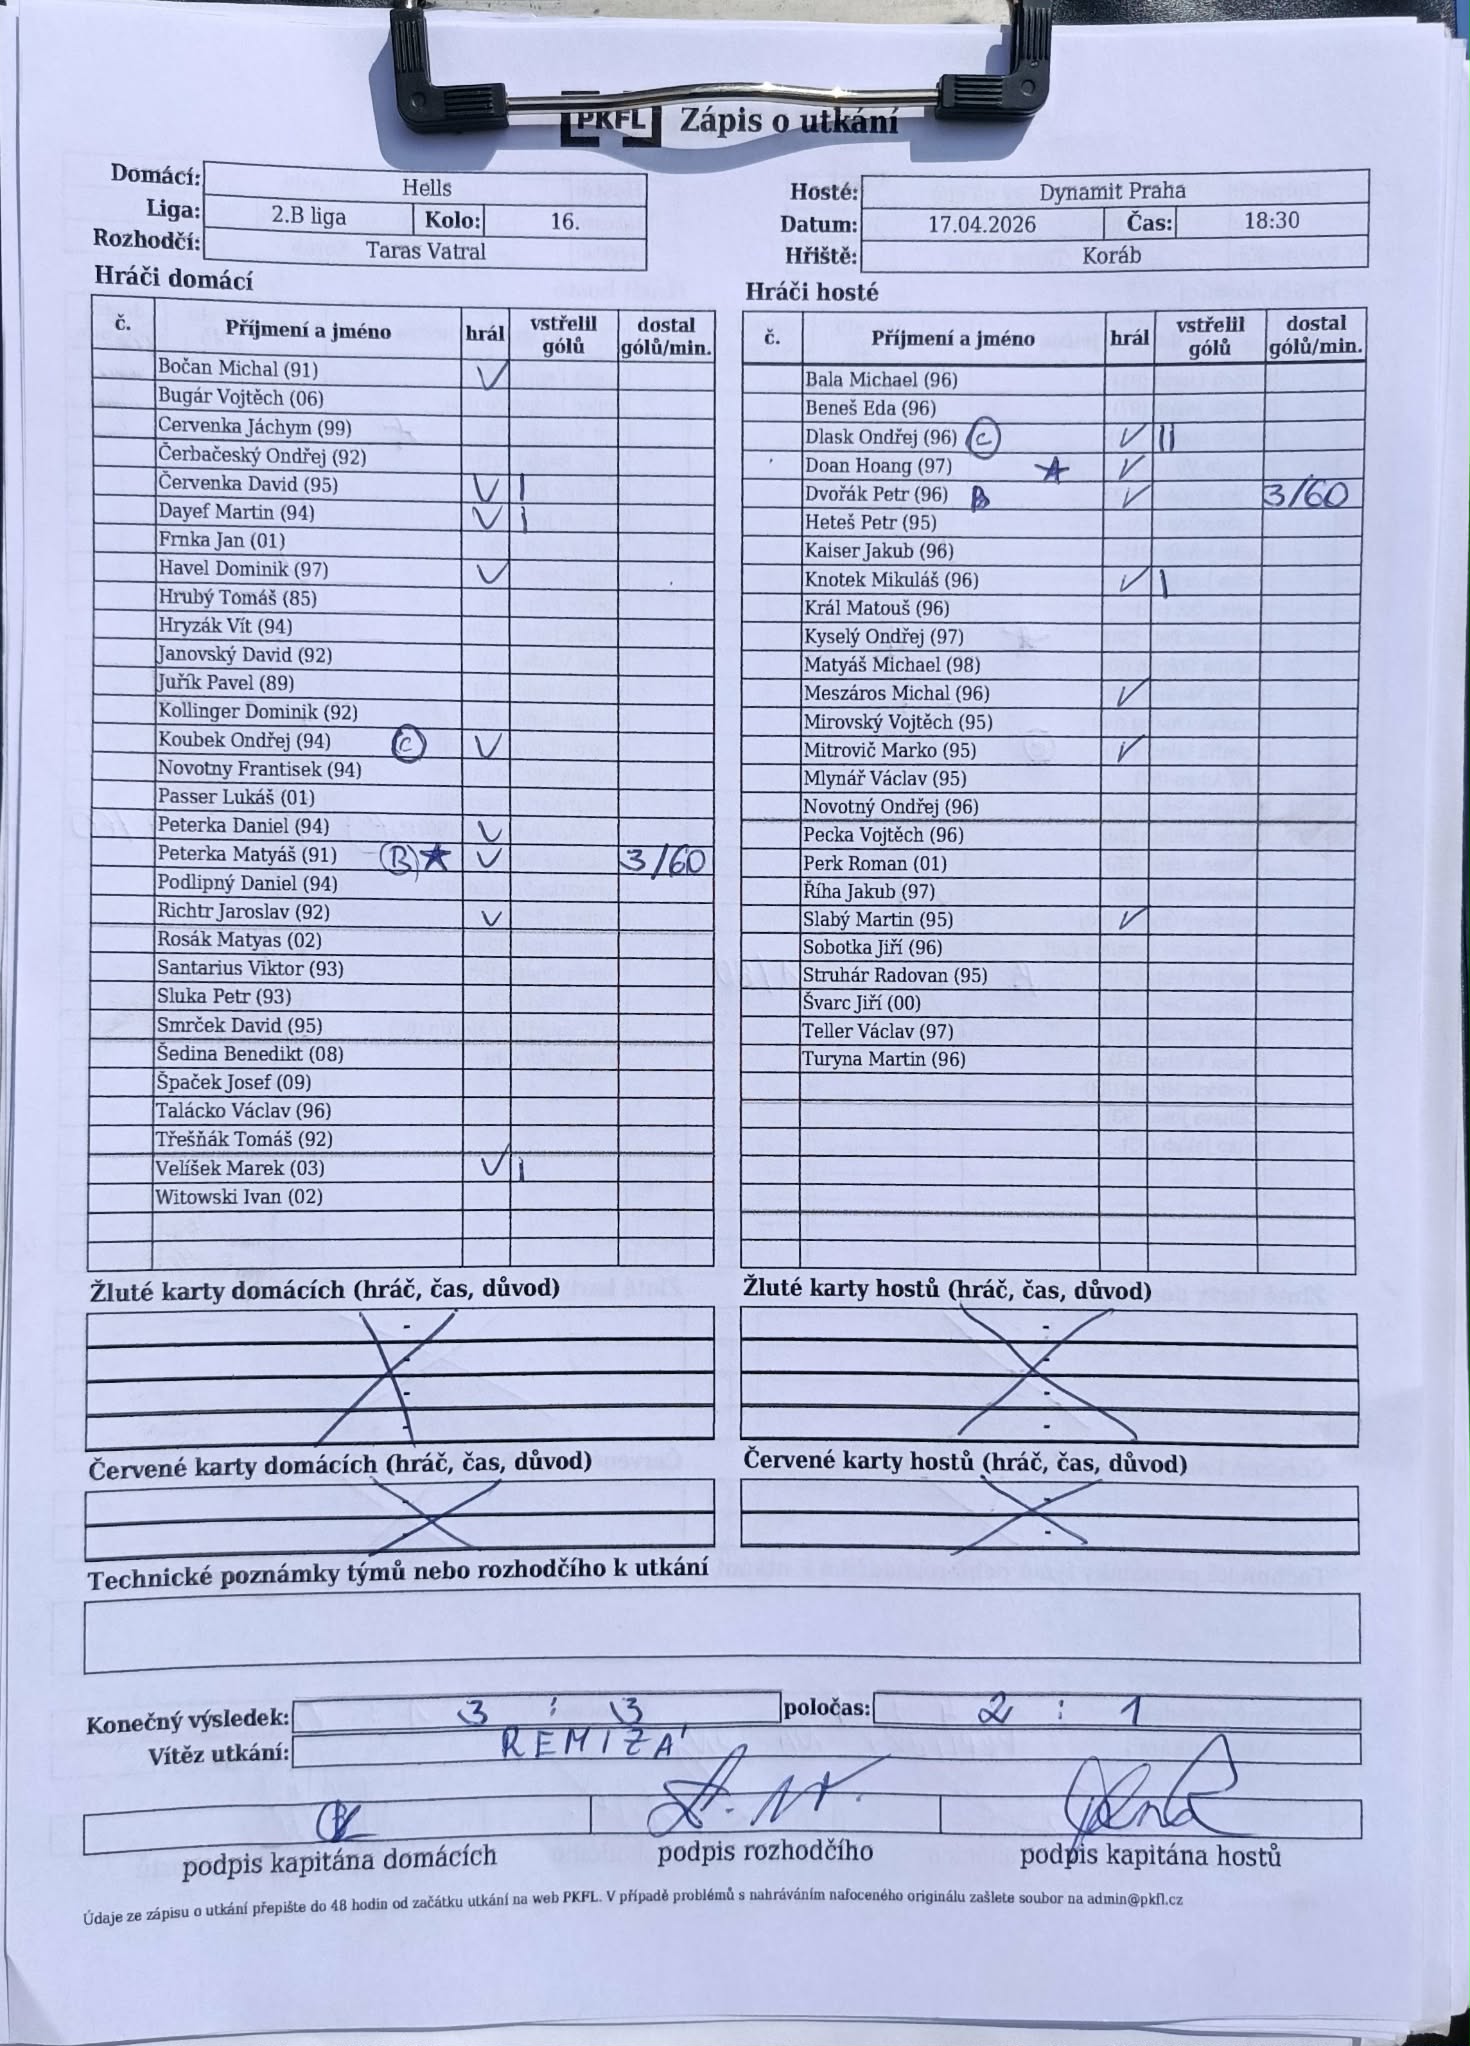 PKFL Zápis o utkání
Domácí: Hells
Liga: 2.B liga Kolo: 16.
Rozhodčí: Taras Vatral
Hosté: Dynamit Praha
Datum: 17.04.2026 Čas: 18:30
Hřiště: Koráb
Hráči domácí
č. Příjmení a jméno hrál vstřelil gólů dostal gólů/min.
Bočan Michal (91) V
Bugár Vojtěch (06)
Červenka Jáchym (99)
Čerbačeský Ondřej (92)
Červenka David (95) V I
Dayef Martin (94) V I
Frnka Jan (01)
Havel Dominik (97) V
Hrubý Tomáš (85)
Hryzák Vít (94)
Janovský David (92)
Juřík Pavel (89)
Kollinger Dominik (92)
Koubek Ondřej (94) C V
Novotny Frantisek (94)
Passer Lukáš (01)
Peterka Daniel (94) V
Peterka Matyáš (91) B ★ V 3/60
Podlipný Daniel (94)
Richtr Jaroslav (92) V
Rosák Matyas (02)
Santarius Viktor (93)
Sluka Petr (93)
Smrček David (95)
Šedina Benedikt (08)
Špaček Josef (09)
Talácko Václav (96)
Třešňák Tomáš (92)
Velíšek Marek (03) V I
Witowski Ivan (02)
Hráči hosté
č. Příjmení a jméno hrál vstřelil gólů dostal gólů/min.
Bala Michael (96)
Beneš Eda (96)
Dlask Ondřej (96) C V II
Doan Hoang (97) ★ V
Dvořák Petr (96) B V 3/60
Heteš Petr (95)
Kaiser Jakub (96)
Knotek Mikuláš (96) V I
Král Matouš (96)
Kyselý Ondřej (97)
Matyáš Michael (98)
Meszáros Michal (96) V
Mirovský Vojtěch (95)
Mitrovič Marko (95) V
Mlynář Václav (95)
Novotný Ondřej (96)
Pecka Vojtěch (96)
Perk Roman (01)
Říha Jakub (97)
Slabý Martin (95) V
Sobotka Jiří (96)
Struhár Radovan (95)
Švarc Jiří (00)
Teller Václav (97)
Turyna Martin (96)
Žluté karty domácích (hráč, čas, důvod)
-
-
-
-
Žluté karty hostů (hráč, čas, důvod)
-
-
-
-
Červené karty domácích (hráč, čas, důvod)
-
-
Červené karty hostů (hráč, čas, důvod)
-
-
Technické poznámky týmů nebo rozhodčího k utkání
Konečný výsledek: 3 : 3 poločas: 2 : 1
Vítěz utkání: REMÍZA
podpis kapitána domácích podpis rozhodčího podpis kapitána hostů
Údaje ze zápisu o utkání přepište do 48 hodin od začátku utkání na web PKFL. V případě problémů s nahráváním nafoceného originálu zašlete soubor na admin@pkfl.cz